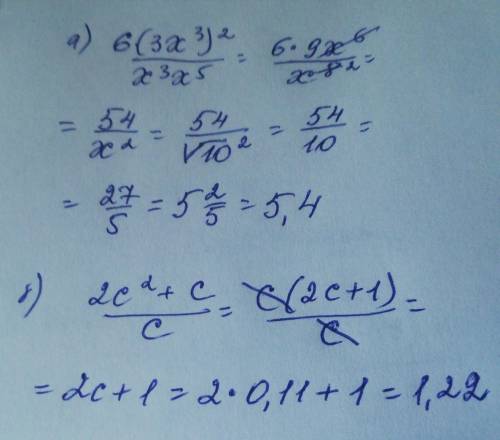 а) 6(3x³)² / x³x⁵ = 6·9x⁶ / x⁸ ² =
= 54/x² = 54/√10² = 54/10 =
= 27/5 = 5 2/5 = 5,4
б) 2c² + c / c = c(2c+1) / c =
= 2c+1 = 2·0,11+1 = 1,22